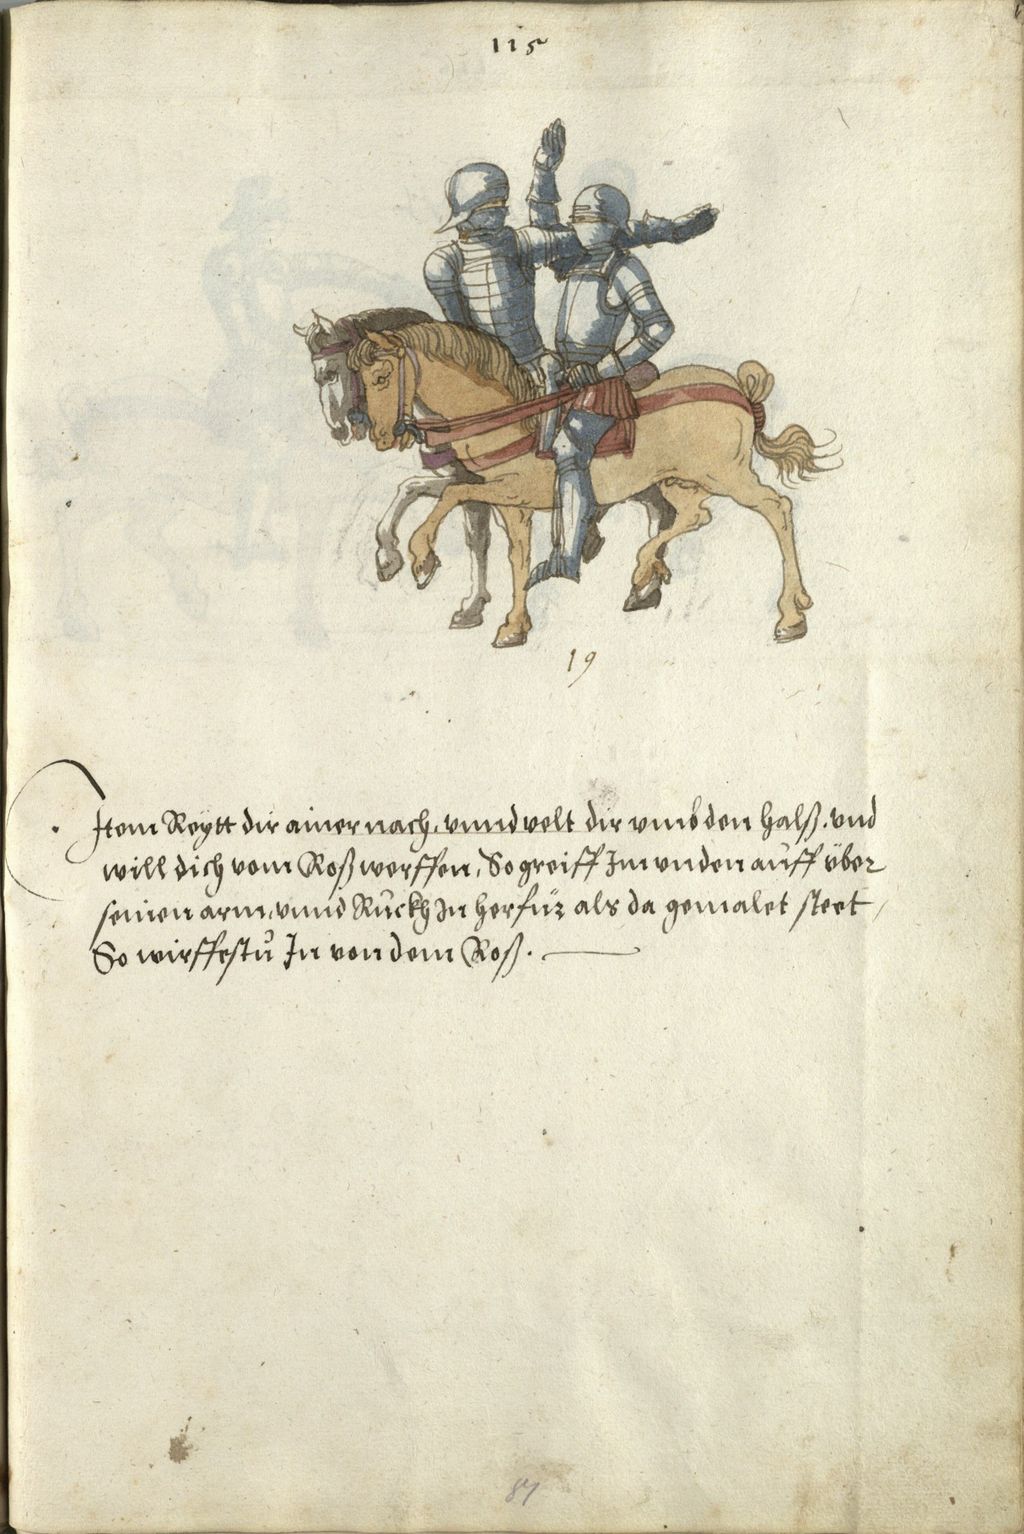 115
19
Item Reytt dir ainer nach, vnnd velt dir vmb den halß, vnd
will dich vom Roß werffen, So greiff Im vnden auff über
seinen arm, vnnd Ruckh In herfür als da gemalet steet /
So wirffestu In von dem Roß.
87